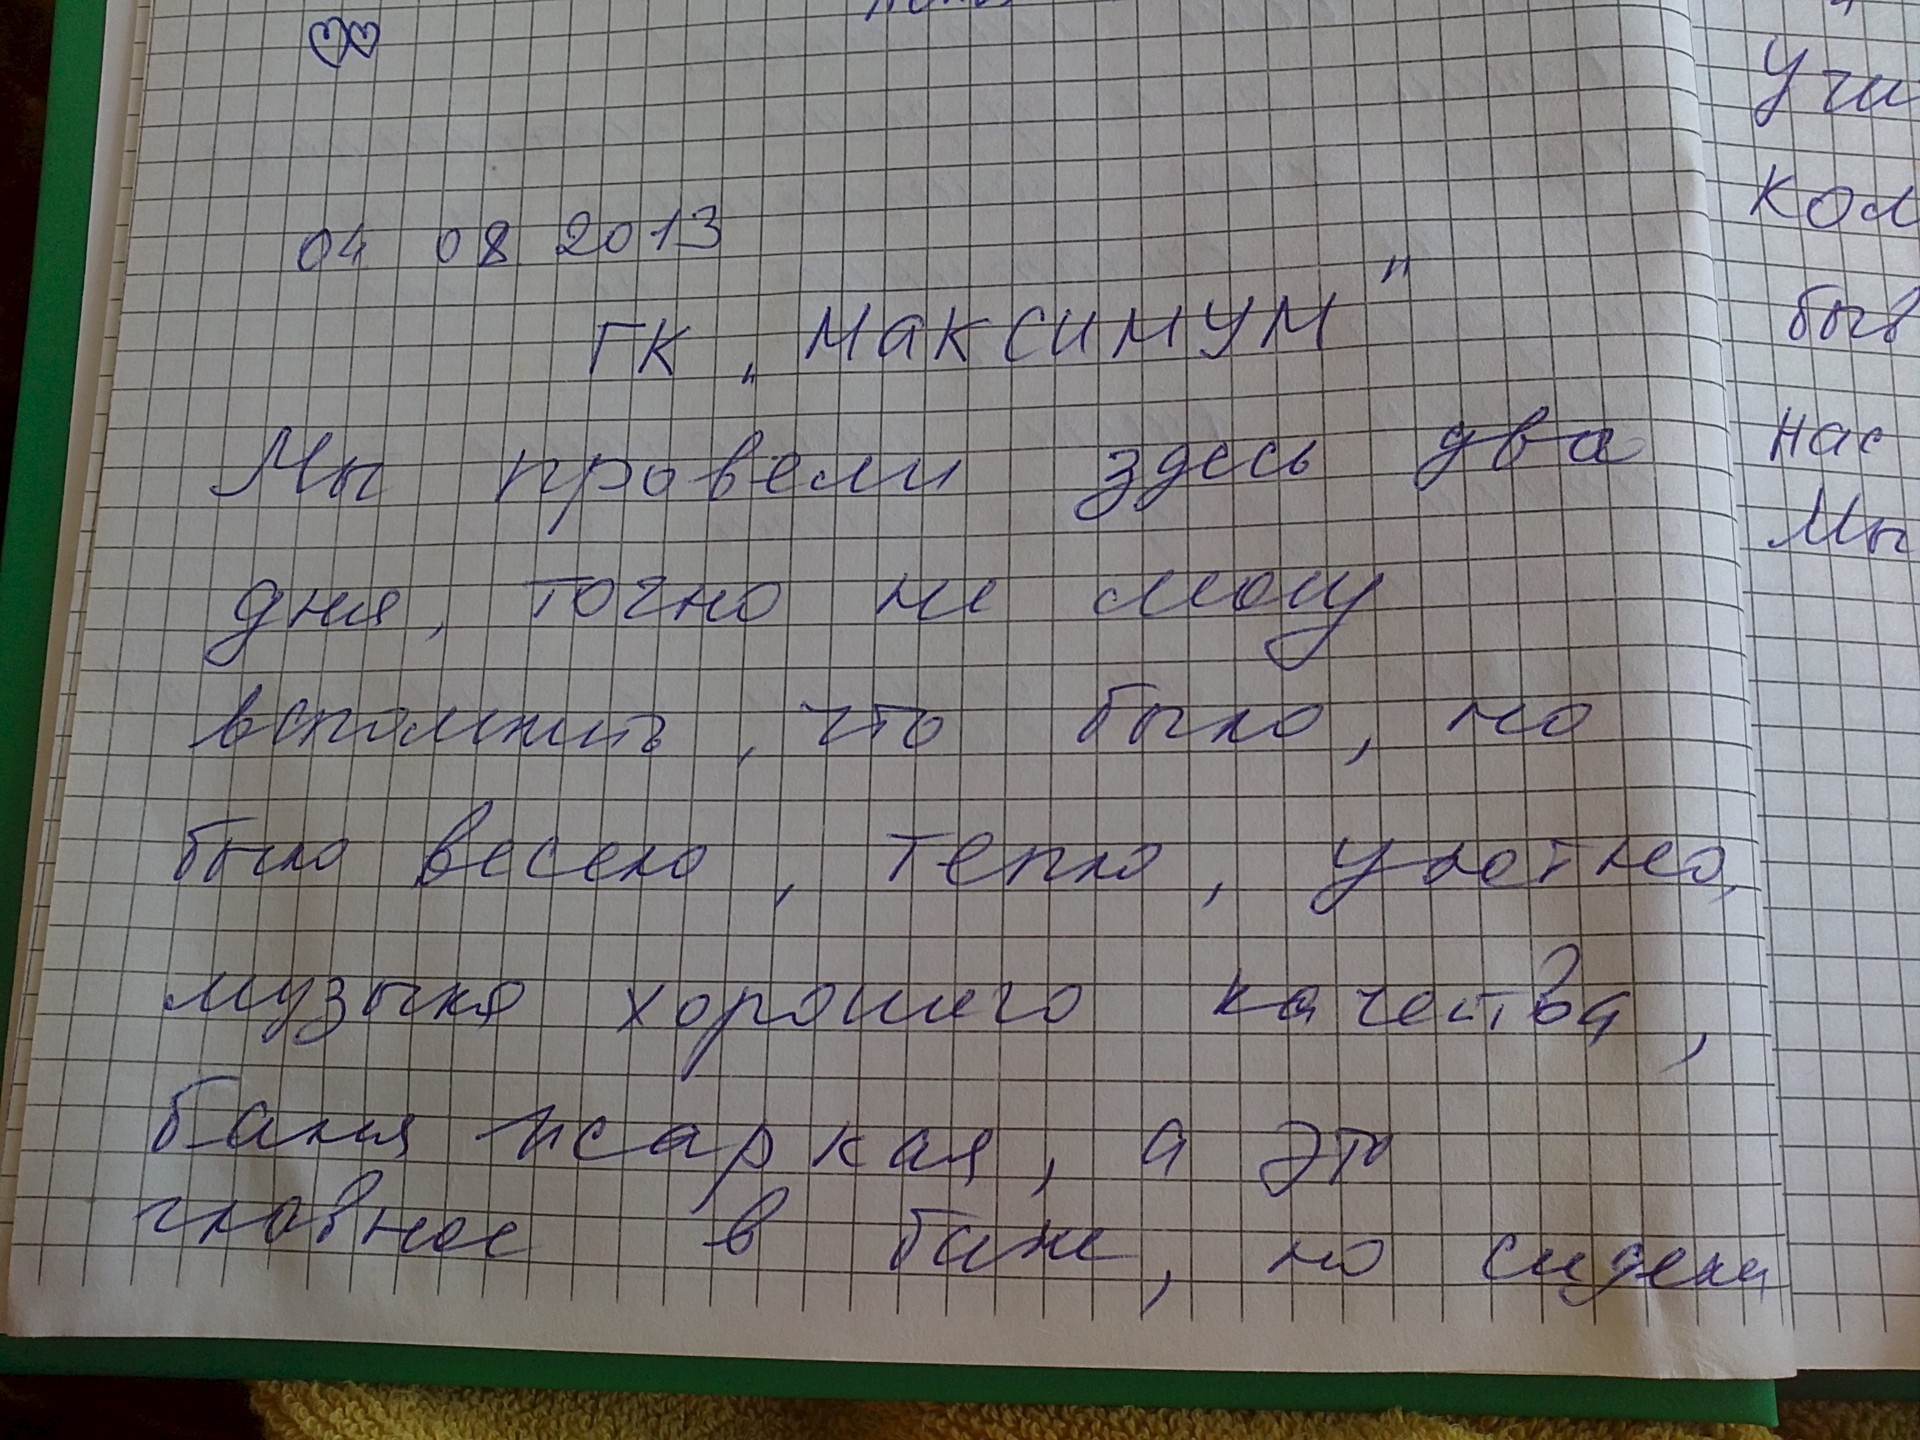 04 08 2013
ГК „Максимум"
Мы провели здесь два
дня, точно не могу
вспомнить, что было, но
было весело, тепло, уютно,
музыка хорошего качества,
баня жаркая, а это
главное в бане, но сидели
Учи
кол
быв
нас
Мы